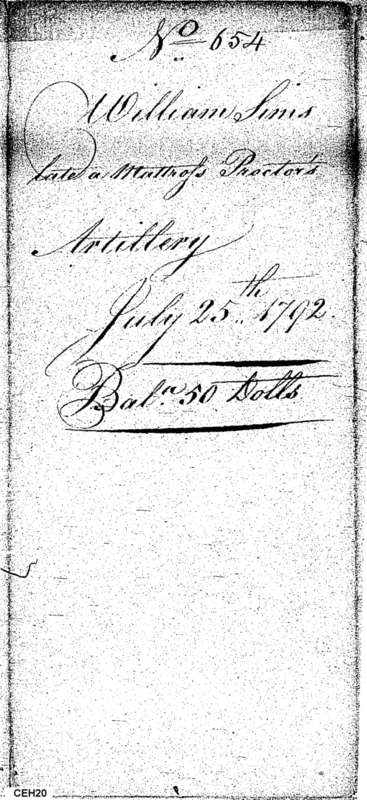 No 654
William Sims
late a Mattross Proctor's
Artillery
July 25th 1792.
Baln 50 Dolls
CEH20